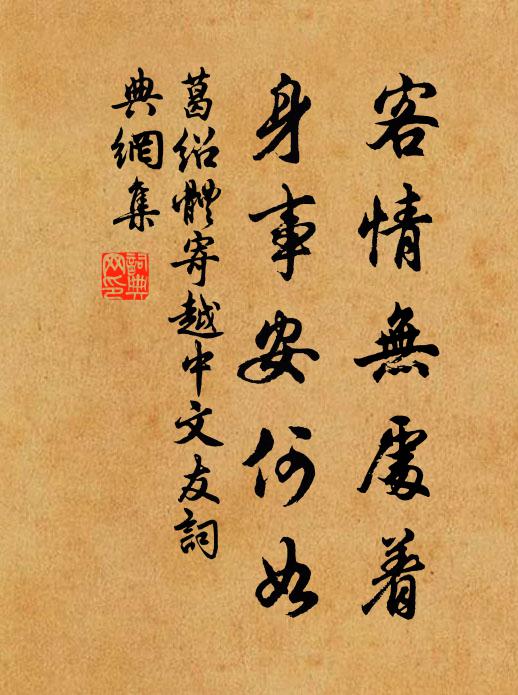 客情無處着
身事安何如
葛紹體寄越中文友詞
典網集
詞典網印